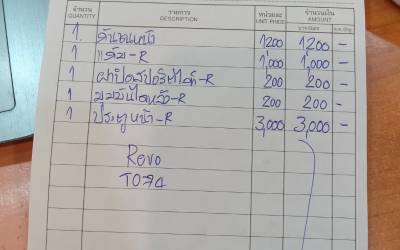 จำนวน รายการ หน่วยละ จำนวนเงิน
QUANTITY DESCRIPTION UNIT PRICE AMOUNT
1 กันชนหน้า 1200 1,200 -
1 แก้ม-R 1,000 1,000 -
1 ฝาปิดสปอร์ตไลท์-R 200 200 -
1 200 200 -
1 ประตูหน้า-R 3,000 3,000 -
Revo